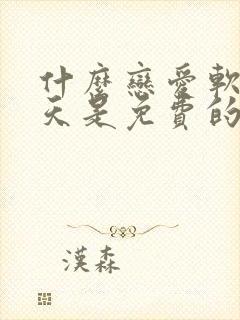 什麼戀愛軟
天是免費的
漢森